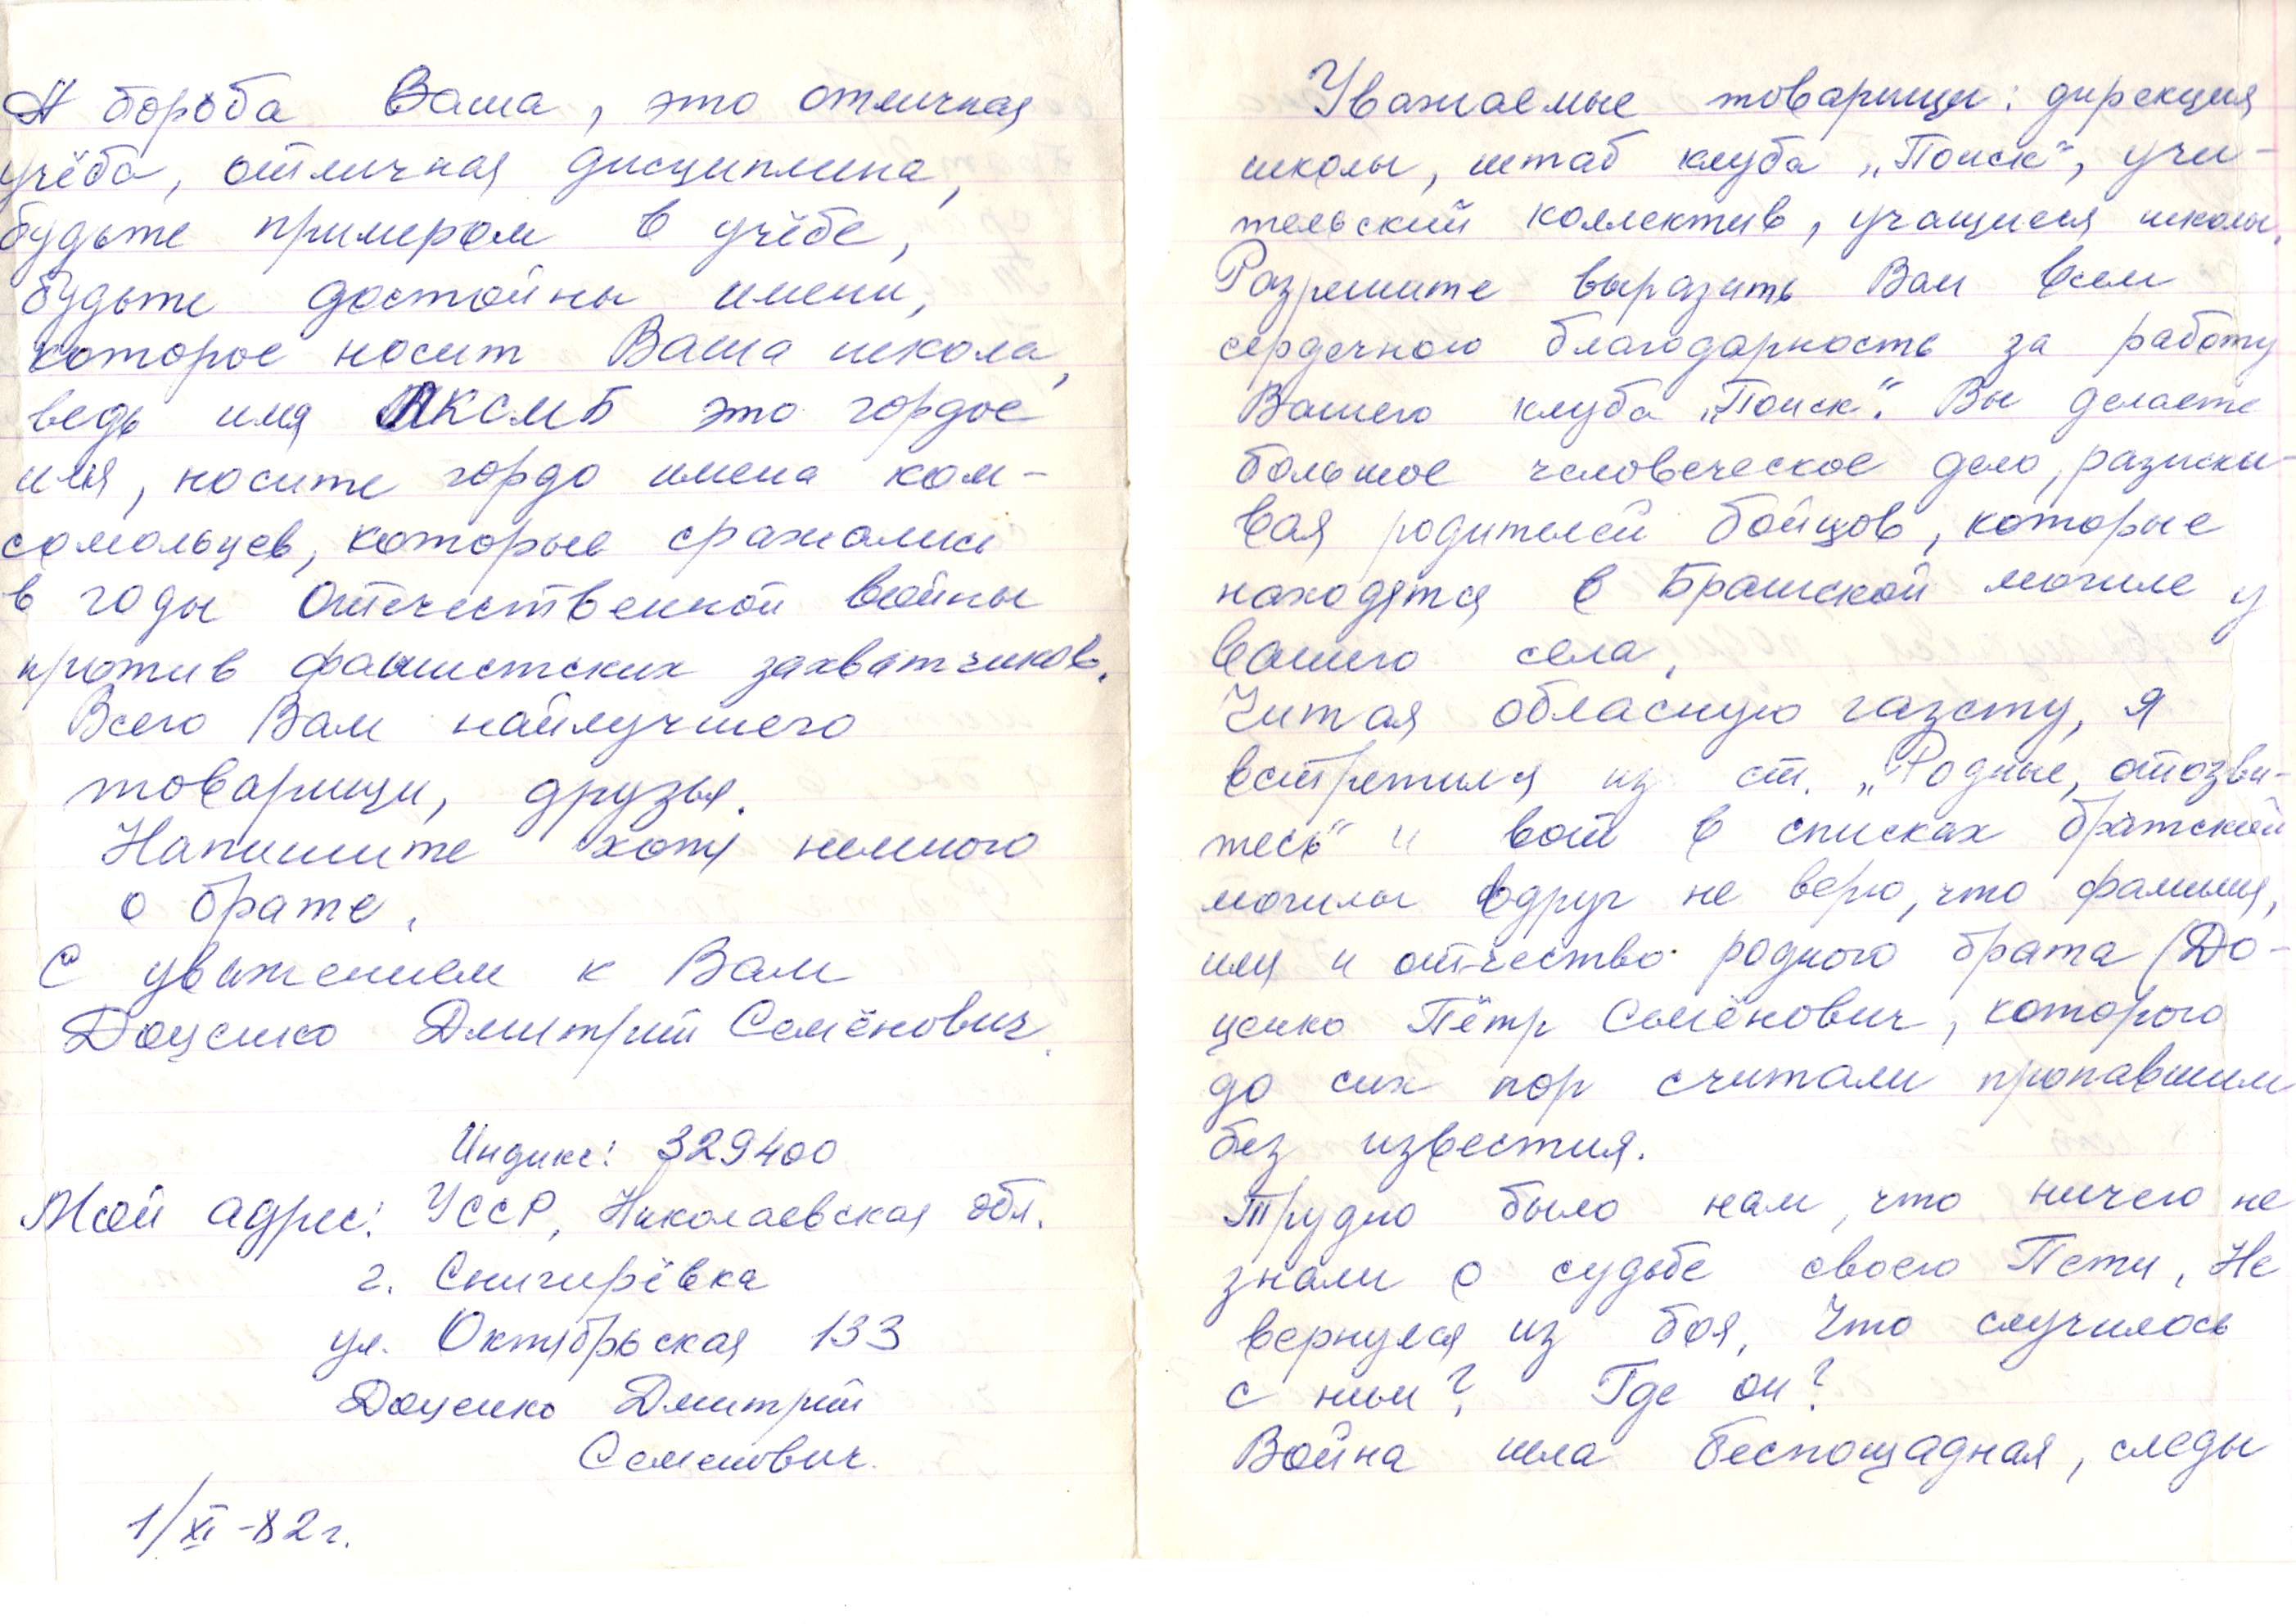 А борьба Ваша, это отличная
учёба, отличная дисциплина,
будьте примером в учёбе,
будьте достойны имени,
которое носит Ваша школа,
ведь имя ЛКСМБ это гордое
имя, носите гордо имена ком-
сомольцев, которые сражались
в годы Отечественной войны
против фашистских захватчиков.
Всего Вам найлучшего
товарищи, друзья.
Напишите хотя немного
о брате.
С уважением к Вам
Доценко Дмитрий Семёнович.
Индикс: 329400
Мой адрес: УССР, Николаевская обл.
г. Снигирёвка
ул. Октябрьская 133
Доценко Дмитрий
Семенович.
1/XI-82г.
Уважаемые товарищи: дирекция
школы, штаб клуба „Поиск“, учи-
тельский коллектив, учащиеся школы.
Разрешите выразить Вам всем
сердечною благодарность за работу
Вашего клуба „Поиск“. Вы делаете
большое человеческое дело, разыски-
вая родителей бойцов, которые
находятся в Братской могиле у
вашего села.
Читая обласную газету, я
встретился из ст. „Родные, отозви-
тесь“ и вот в списках братской
могилы вдруг не верю, что фамилия,
имя и отчество родного брата (До-
ценко Пётр Семёнович, которого
до сих пор считали пропавшим
без известия.
Трудно было нам, что ничего не
знали о судьбе своего Пети. Не
вернулся из боя. Что случилось
с ним? Где он?
Война шла беспощадная, следы